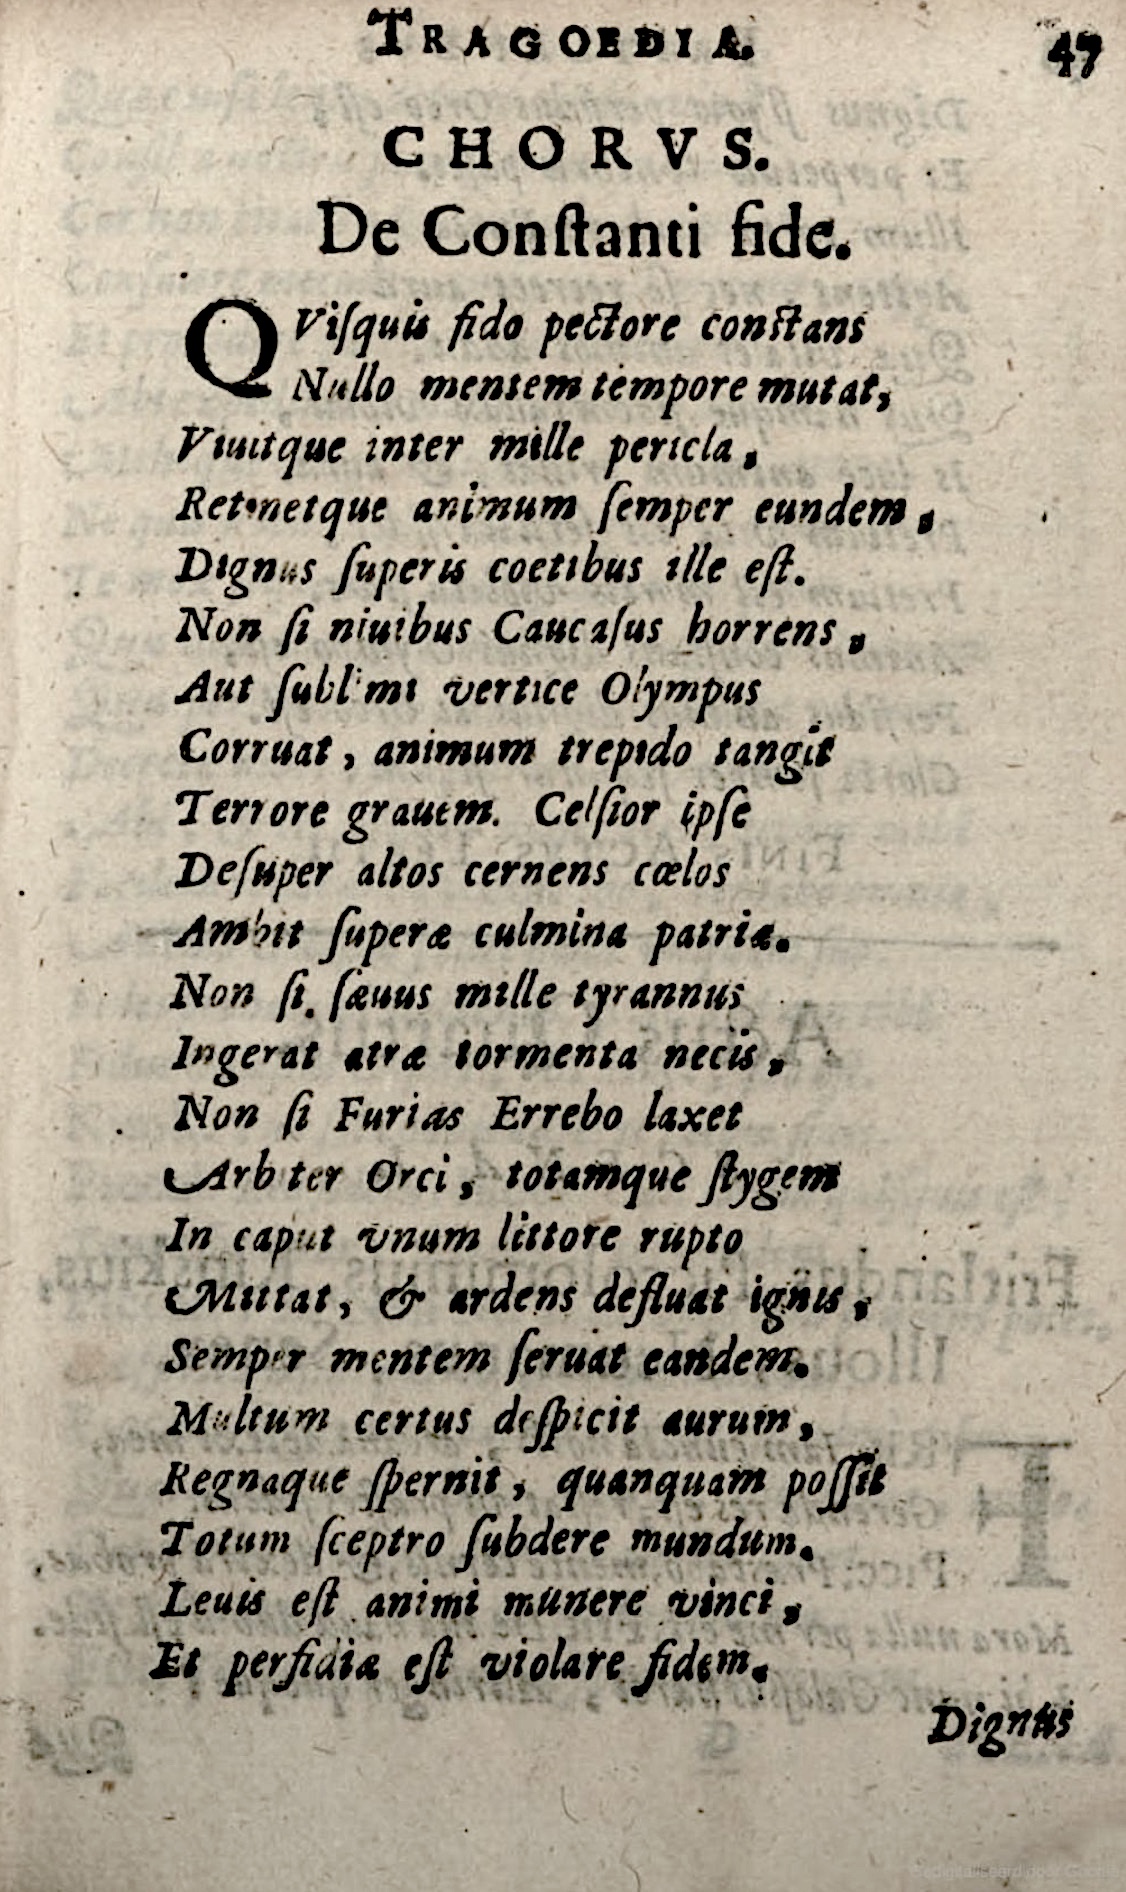 TRAGOEDIA.
47
CHORVS.
De Conſtanti fide.
QViſquis fido pectore conſtans
Nullo mentem tempore mutat,
Viuitque inter mille pericla,
Retinetque animum ſemper eundem,
Dignus ſuperis coetibus ille eſt.
Non ſi niuibus Caucaſus horrens,
Aut ſublimi vertice Olympus
Corruat, animum trepido tangit
Terrore grauem. Celſior ipſe
Deſuper altos cernens cœlos
Ambit ſuperæ culmina patriæ.
Non ſi. ſæuus mille tyrannus
Ingerat atræ tormenta necis,
Non ſi Furias Errebo laxet
Arbiter Orci, totamque ſtygem
In caput vnum littore rupto
Mittat, & ardens defluat ignis,
Semper mentem ſeruat eandem.
Multum certus deſpicit aurum,
Regnaque ſpernit, quanquam poſſit
Totum ſceptro ſubdere mundum.
Leuis eſt animi munere vinci,
Et perfidiæ eſt violare fidem.
Dignus